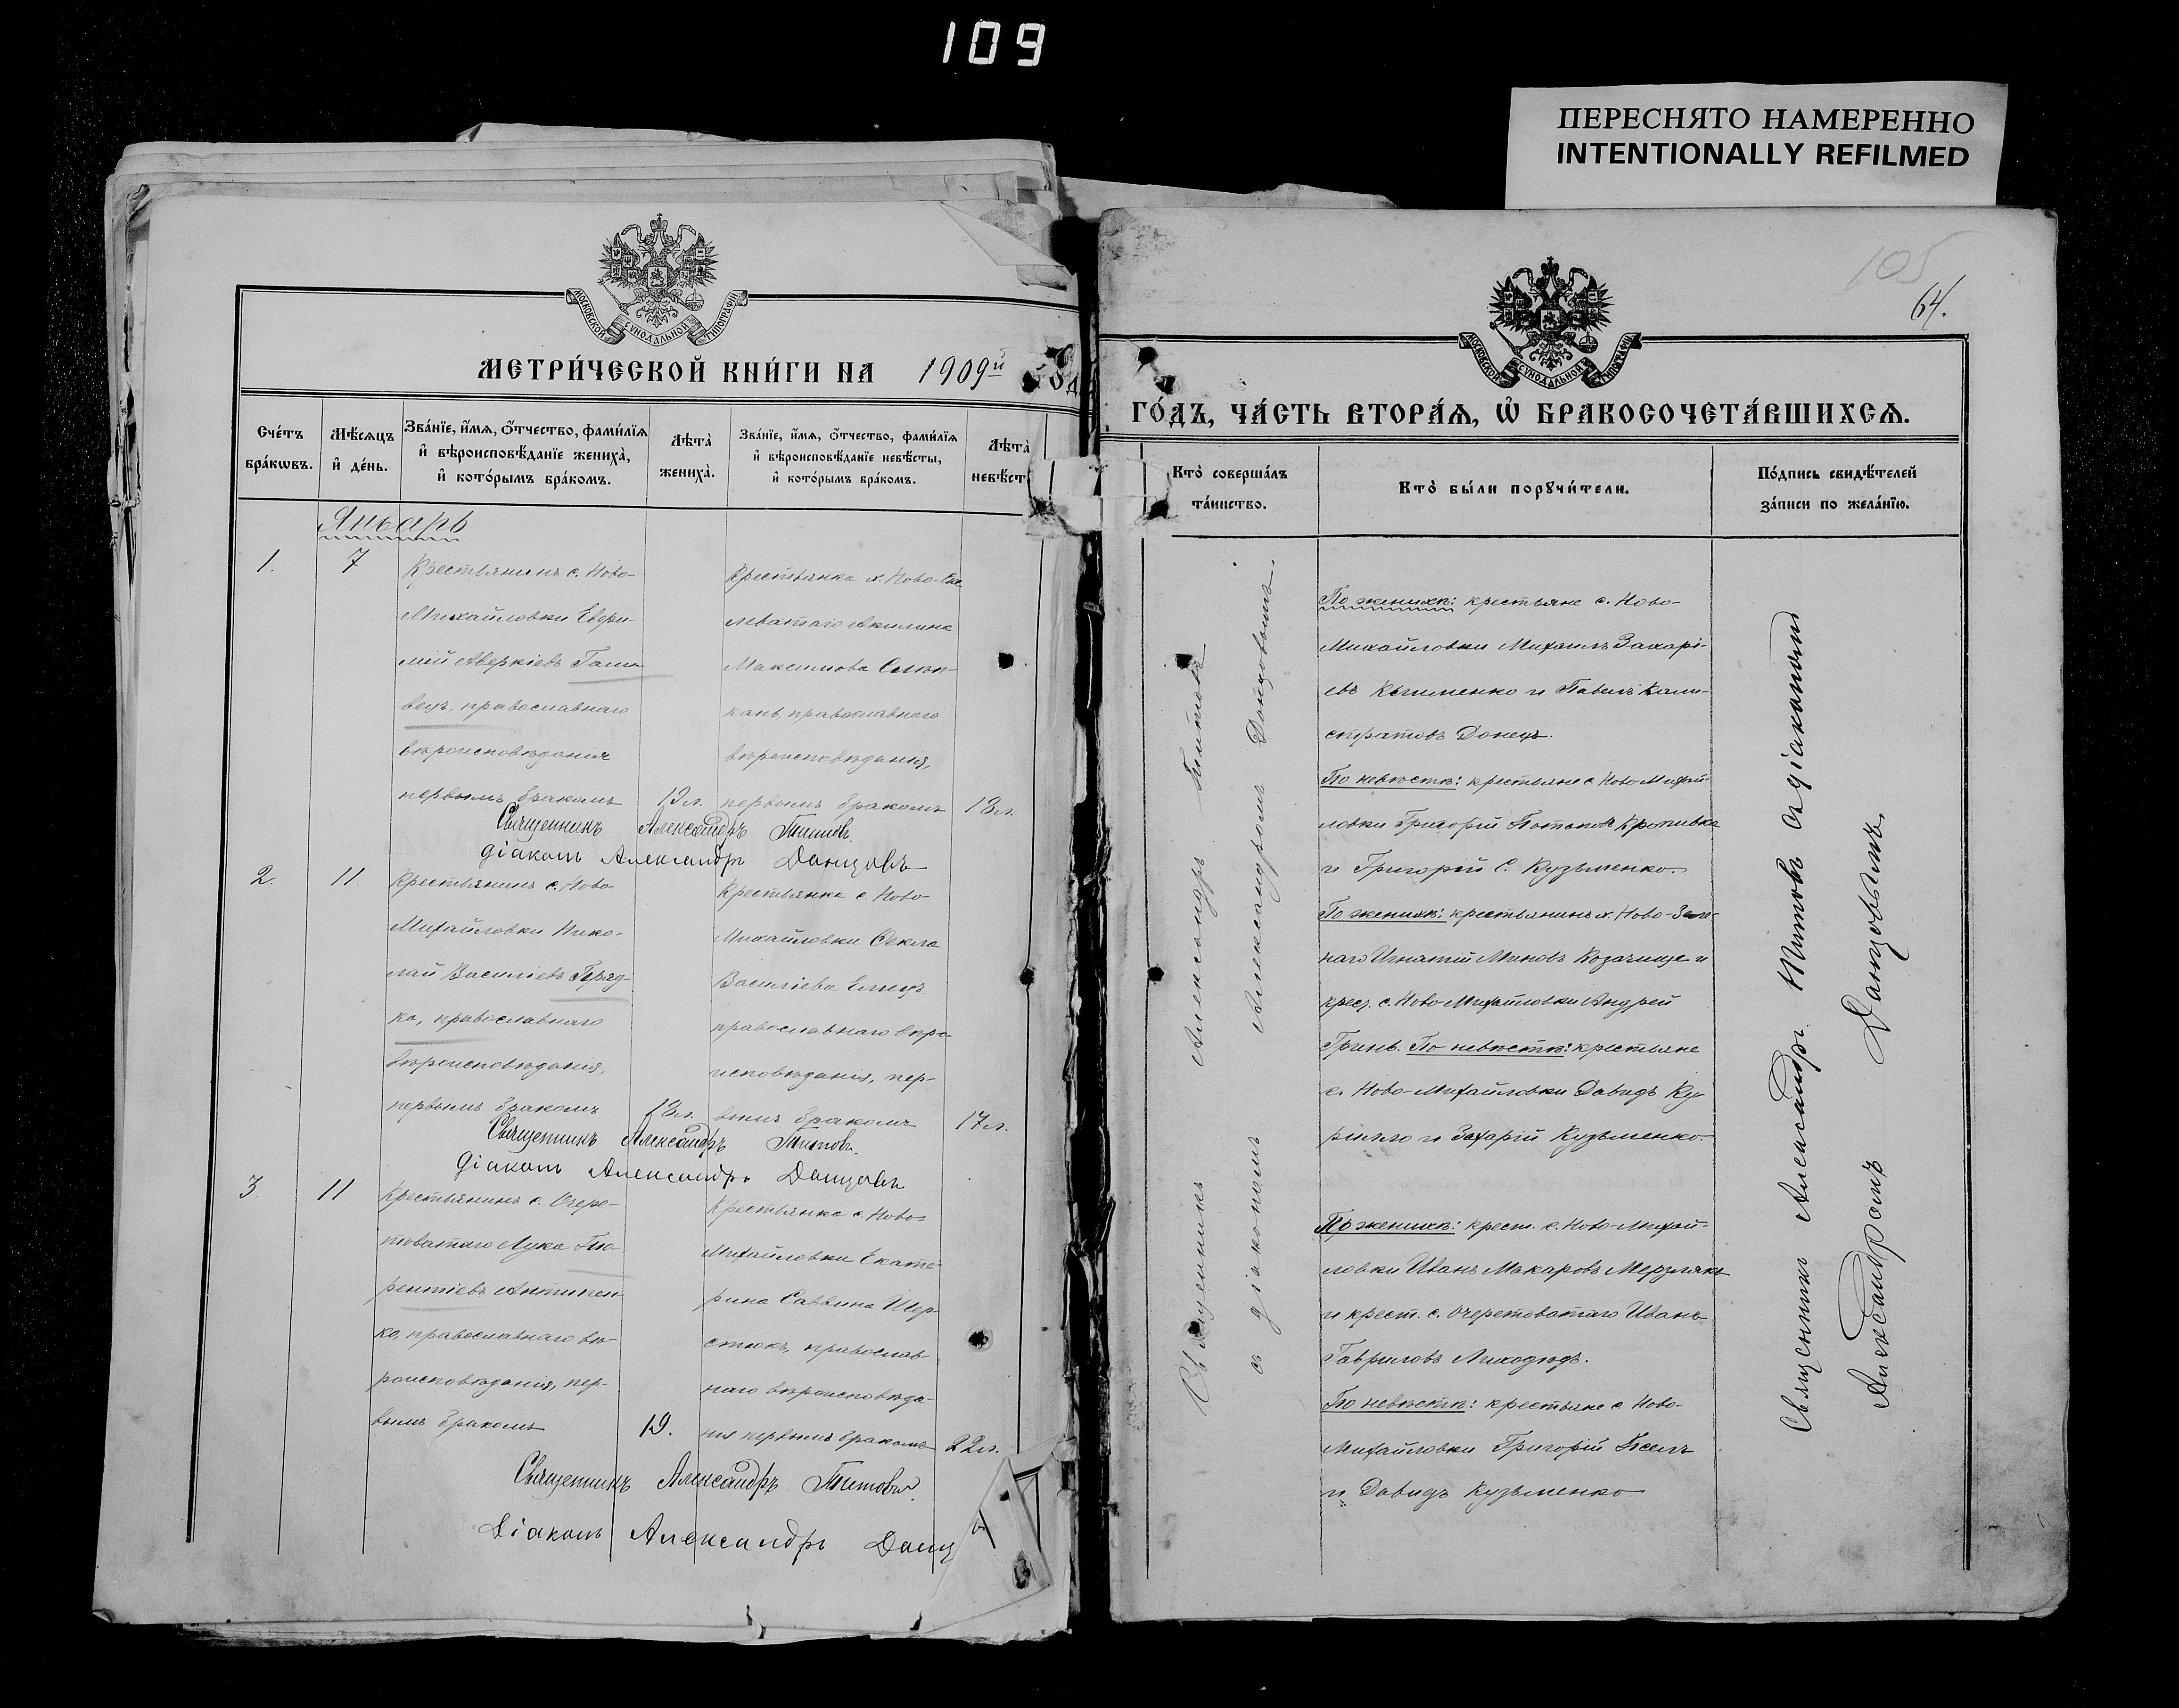 109
ПЕРЕСНЯТО НАМЕРЕННО
INTENTIONALLY REFILMED
МОСКОВСКОЙ СѴНОДАЛЬНОЙ ТИПОГРАФІИ
МЕТРИ́ЧЕСКОЙ КНИ́ГИ НА 1909й
Сче́тъ бра́кωвъ.
Мѣ́сяцъ и҆ де́нь.
Зва́нїе, и҆́мѧ, ѻ҆́тчество, фами́лїѧ и҆ вѣроисповѣ́данїе жениха̀, и҆ кото́рымъ бра́комъ.
Лѣта̀ жениха̀.
Зва́нїе, и҆́мѧ, ѻ҆́тчество, фами́лїѧ и҆ вѣроисповѣ́данїе невѣ́сты, и҆ кото́рымъ бра́комъ.
Лѣта̀ невѣ́ст
Январь
1.
7
Крестьянинъ с. Ново-
Михайловки Евфи-
мій Аверкіевъ
вецъ, православнаго
вѣроисповѣданія
первымъ бракомъ
19 л.
Крестьянка х. Ново-
Акилина
Максимова
православнаго
вѣроисповѣданія,
первымъ бракомъ
18 л.
Священникъ Александръ Титовъ.
Діаконъ Александръ Донцовъ
2.
11.
Крестьянинъ с. Ново
Михайловки Нико-
лай Васильевъ Гряд-
ко, православнаго
вѣроисповѣданія,
первымъ бракомъ
18 л.
Крестьянка с. Ново-
Михайловки Фекла
Васильева Емецъ
православнаго вѣро-
исповѣданія, пер-
вымъ бракомъ
17 л.
Священникъ Александръ Титовъ.
Діаконъ Александръ Донцовъ
3.
11
Крестьянинъ с. Очере-
товатаго Лука
рентіевъ Антипен
ко, православнаго вѣ-
роисповѣданія, пер-
вымъ бракомъ
19.
Крестьянка с. Ново-
Михайловки Екате-
рина Саввина Шер-
стюкъ, православ-
наго вѣроисповѣда-
нія первымъ бракомъ
22 л.
Священникъ Александръ Титовъ.
Діаконъ Александръ Донц
105
64.
МОСКОВСКОЙ СѴНОДАЛЬНОЙ ТИПОГРАФІИ
ГО́ДЪ, ЧА́СТЬ ВТОРА́Ѧ, Ѽ БРАКОСОЧЕТА́ВШИХСѦ.
Кто̀ соверша́лъ та́инство.
Кто̀ бы́ли порꙋчи́тели.
По́дпись свидѣ́телей за́писи по жела́нїю.
Священникъ Александръ Титовъ
съ діакономъ Александромъ Донцовымъ.
По женихѣ: крестьяне с. Ново-
Михайловки Михаилъ Захарі-
евъ Клименко и Павелъ Кали-
стратовъ Донецъ.
По невѣстѣ: крестьяне с Ново Михай-
ловки Григорій Потаповъ Кропивка
и Григорій С. Кузьменко.
По женихѣ: крестьянинъ х. Ново-
наго Игнатій Миновъ Козачище и
крес. с. Ново Михайловки Андрей
Гринь. По невѣстѣ: крестьяне
с. Ново-Михайловки Давидъ Ку-
рило и Захарій Кузьменко.
По женихѣ: крест. с. Ново-Михай-
ловки Иванъ Макаровъ Мерзлякъ
и крест. с. Очеретоватаго Иванъ
Гавриловъ Лиходѣдъ.
По невѣстѣ: крестьяне с Ново-
Михайловки Григорій Пселъ
и Давидъ Кузьменко
Священникъ Александръ Титовъ съ діакономъ
Александромъ Донцовымъ.